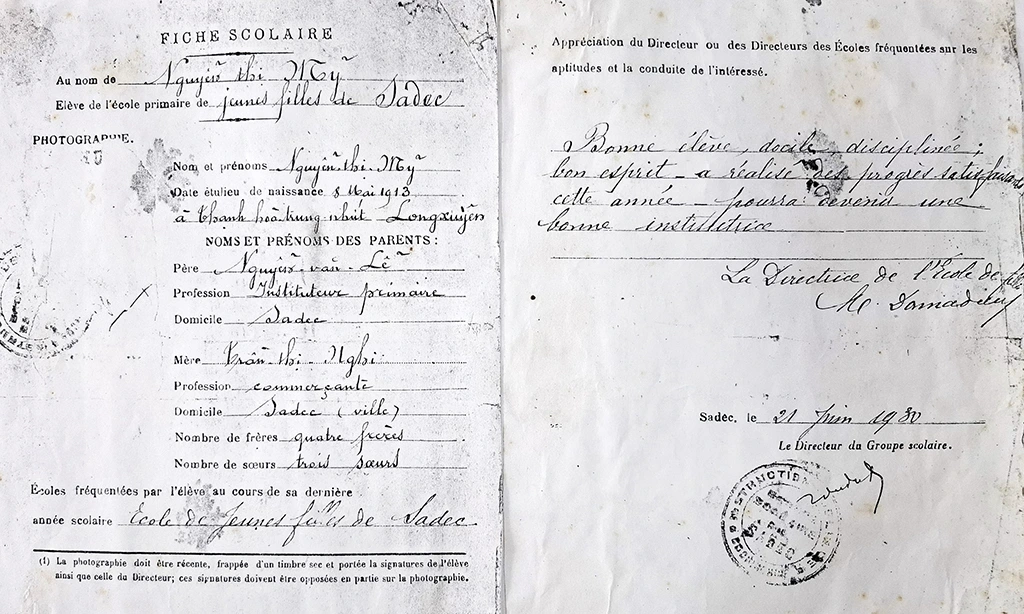 FICHE SCOLAIRE
Au nom de Nguyễn thi Mỹ
Elève de l'école primaire de jeunes filles de Sadec
PHOTOGRAPHIE.
Nom et prénoms Nguyễn-thi-Mỹ
Date et lieu de naissance 8 Mai 1913
à Thanh hoà trung nhứt - Longxuyên
NOMS ET PRÉNOMS DES PARENTS :
Père Nguyễn-van-Lễ
Profession Instituteur primaire
Domicile Sadec
Mère Trần-thi-Nghi
Profession commerçante
Domicile Sadec (ville)
Nombre de frères quatre frères
Nombre de sœurs trois sœurs
Écoles fréquentées par l'élève au cours de sa dernière
année scolaire Ecole de Jeunes filles de Sadec
(1) La photographie doit être récente, frappée d'un timbre sec et portée la signatures de l'élève
ainsi que celle du Directeur; ces signatures doivent être opposées en partie sur la photographie.
Appréciation du Directeur ou des Directeurs des Écoles fréquentées sur les
aptitudes et la conduite de l'intéressé.
Bonne élève, docile, disciplinée;
bon esprit - a réalisé des progrès satisfaisants
cette année - pourra devenir une
bonne institutrice
La Directrice de l'École de
Sadec, le 21 Juin 1930
Le Directeur du Groupe scolaire.
INSTRUCTION
SADEC